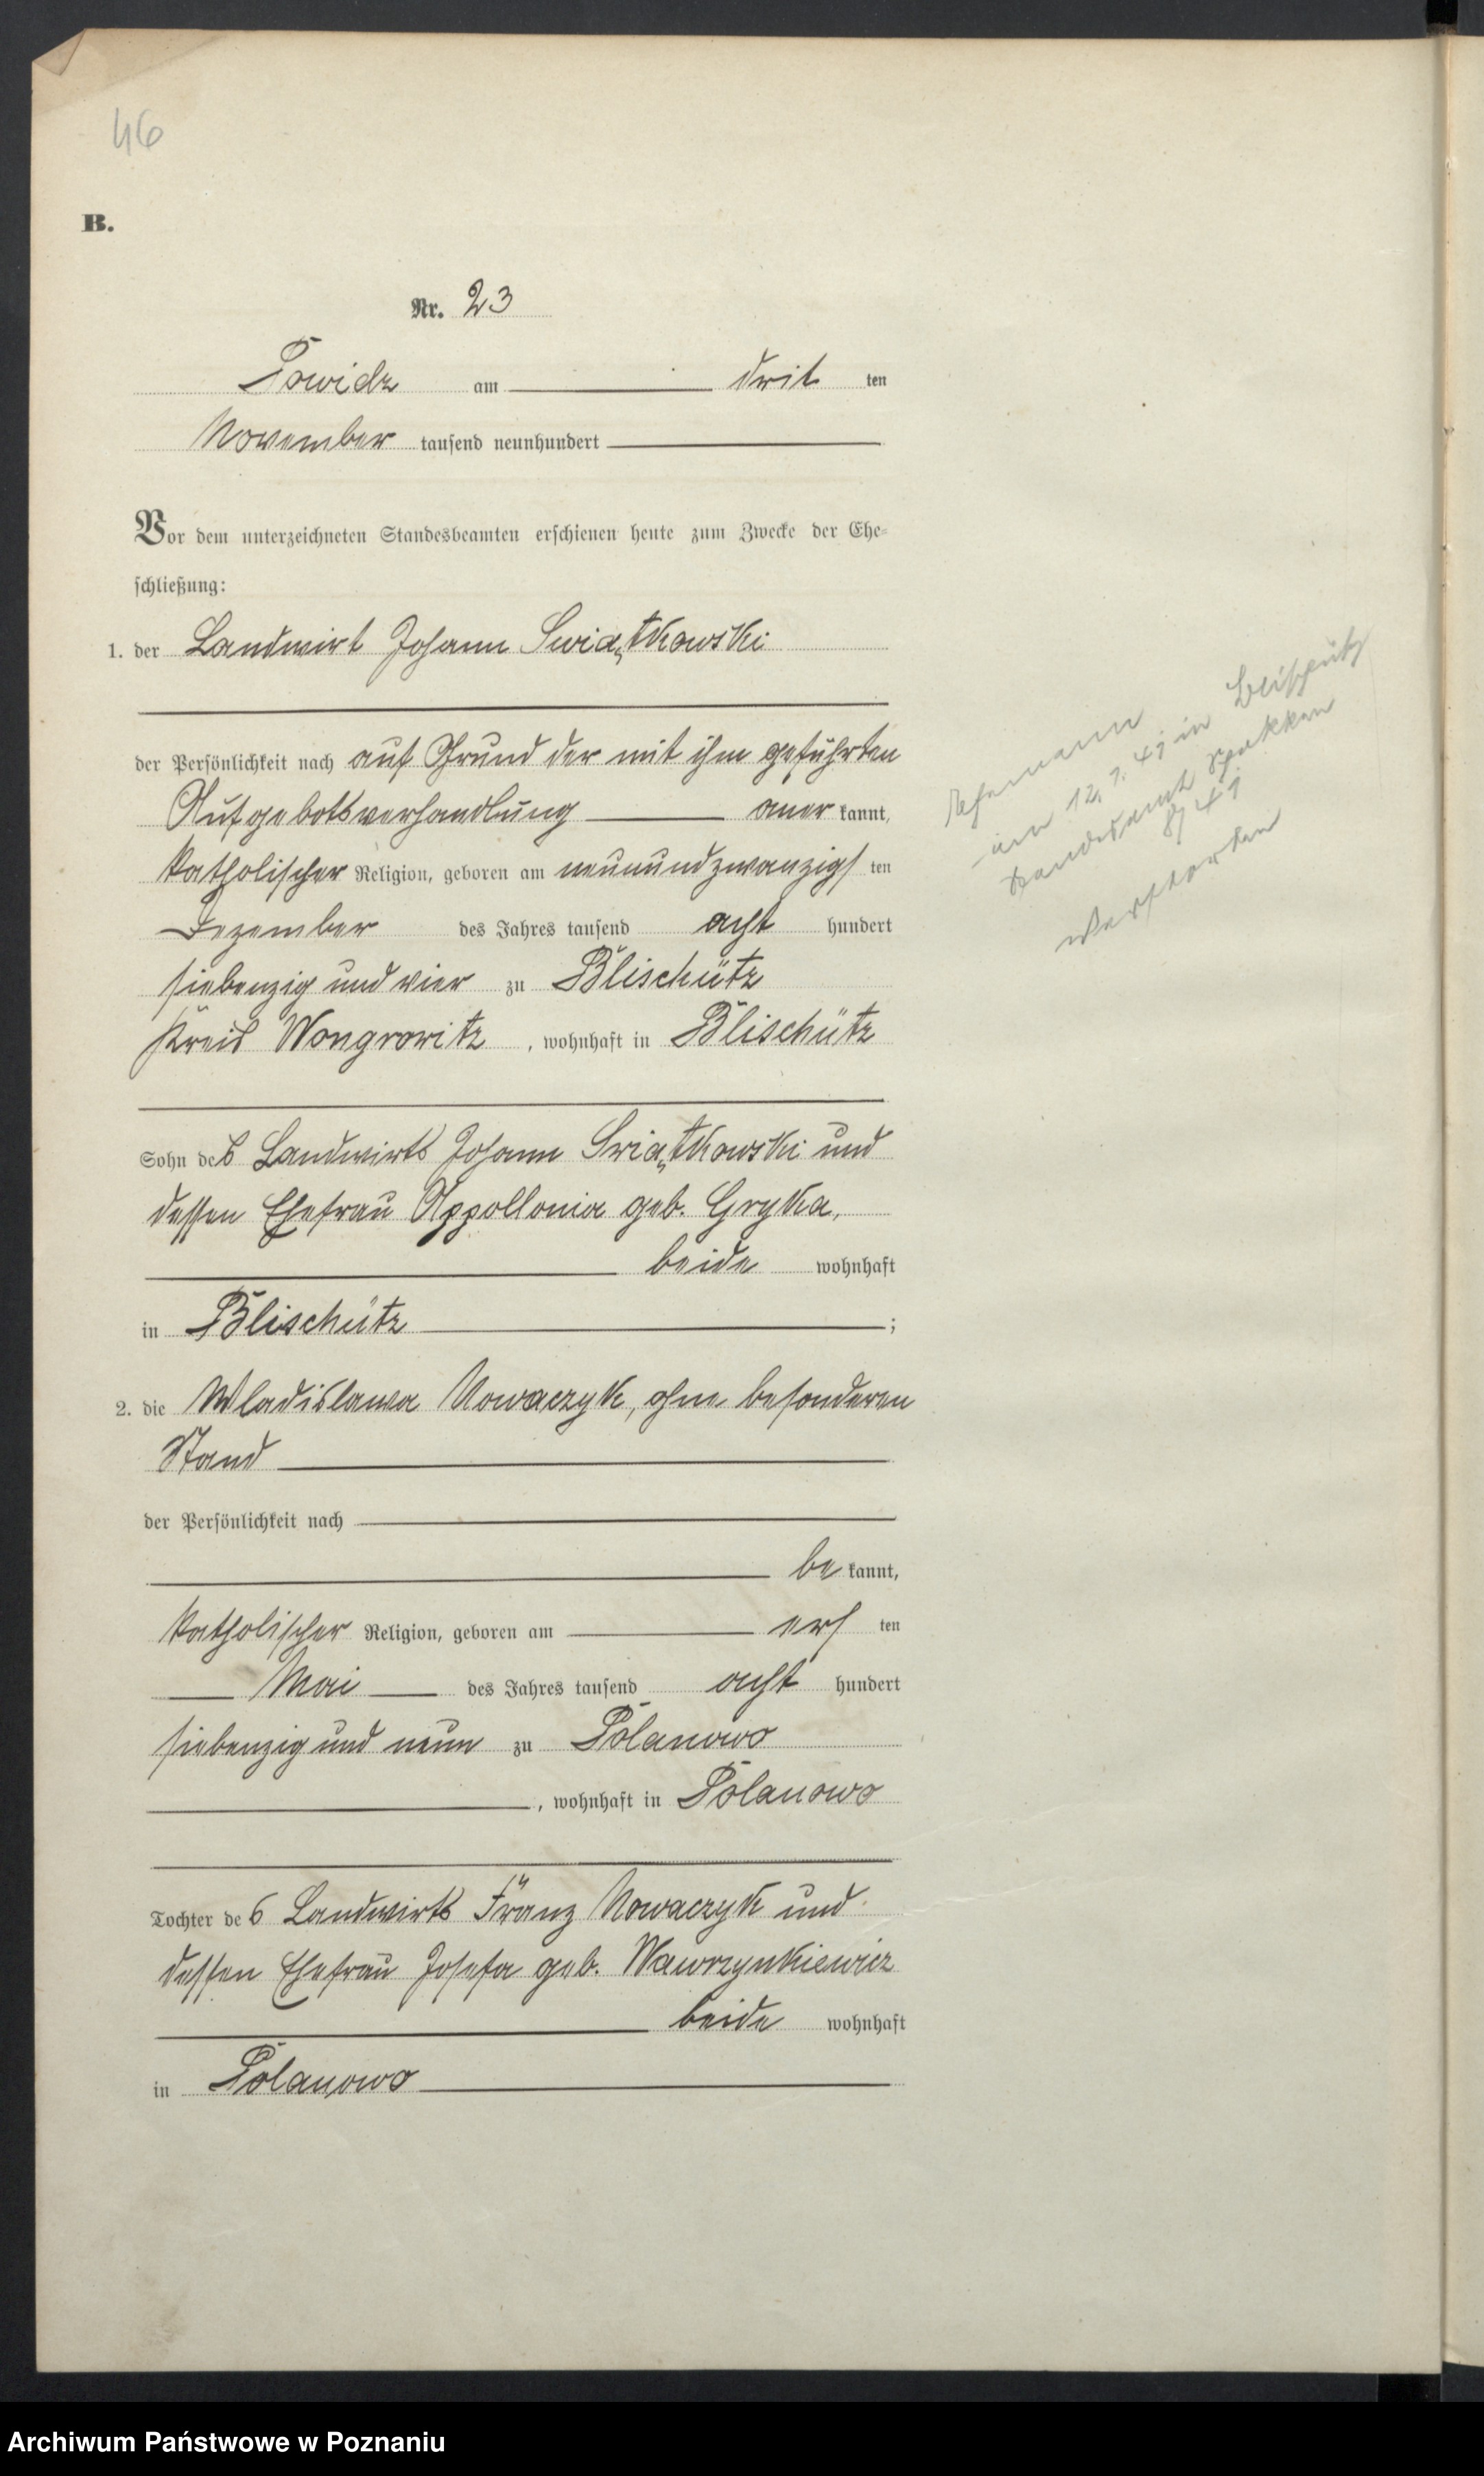 46
B.
Nr. 23
Powidz am drit ten
November tausend neunhundert
Vor dem unterzeichneten Standesbeamten erschienen heute zum Zwecke der Ehe-
schließung:
1. der Landwirt Johann Swiątkowski
der Persönlichkeit nach auf Grund der mit ihm geführten
Aufgebotsverhandlung aner kannt,
katholischer Religion, geboren am neunundzwanzigs ten
Dezember des Jahres tausend acht hundert
siebenzig und vier zu Blischütz
Kreis Wongrowitz, wohnhaft in Blischütz
Sohn des Landwirts Johann Swiątkowski und
dessen Ehefrau Appollonia geb. Gryka,
beide wohnhaft
in Blischütz ;
2. die Wladislawa Nowaczyk, ohne besonderen
Stand
der Persönlichkeit nach
be kannt,
katholischer Religion, geboren am ers ten
Mai des Jahres tausend acht hundert
siebenzig und neun zu Polanowo
, wohnhaft in Polanowo
Tochter des Landwirts Franz Nowaczyk und
dessen Ehefrau Josefa geb. Wawrzynkiewicz
beide wohnhaft
in Polanowo
Ehemann
am 12. 1. 41 in Blischütz
Standesamt
8/41
verstorben
Archiwum Państwowe w Poznaniu